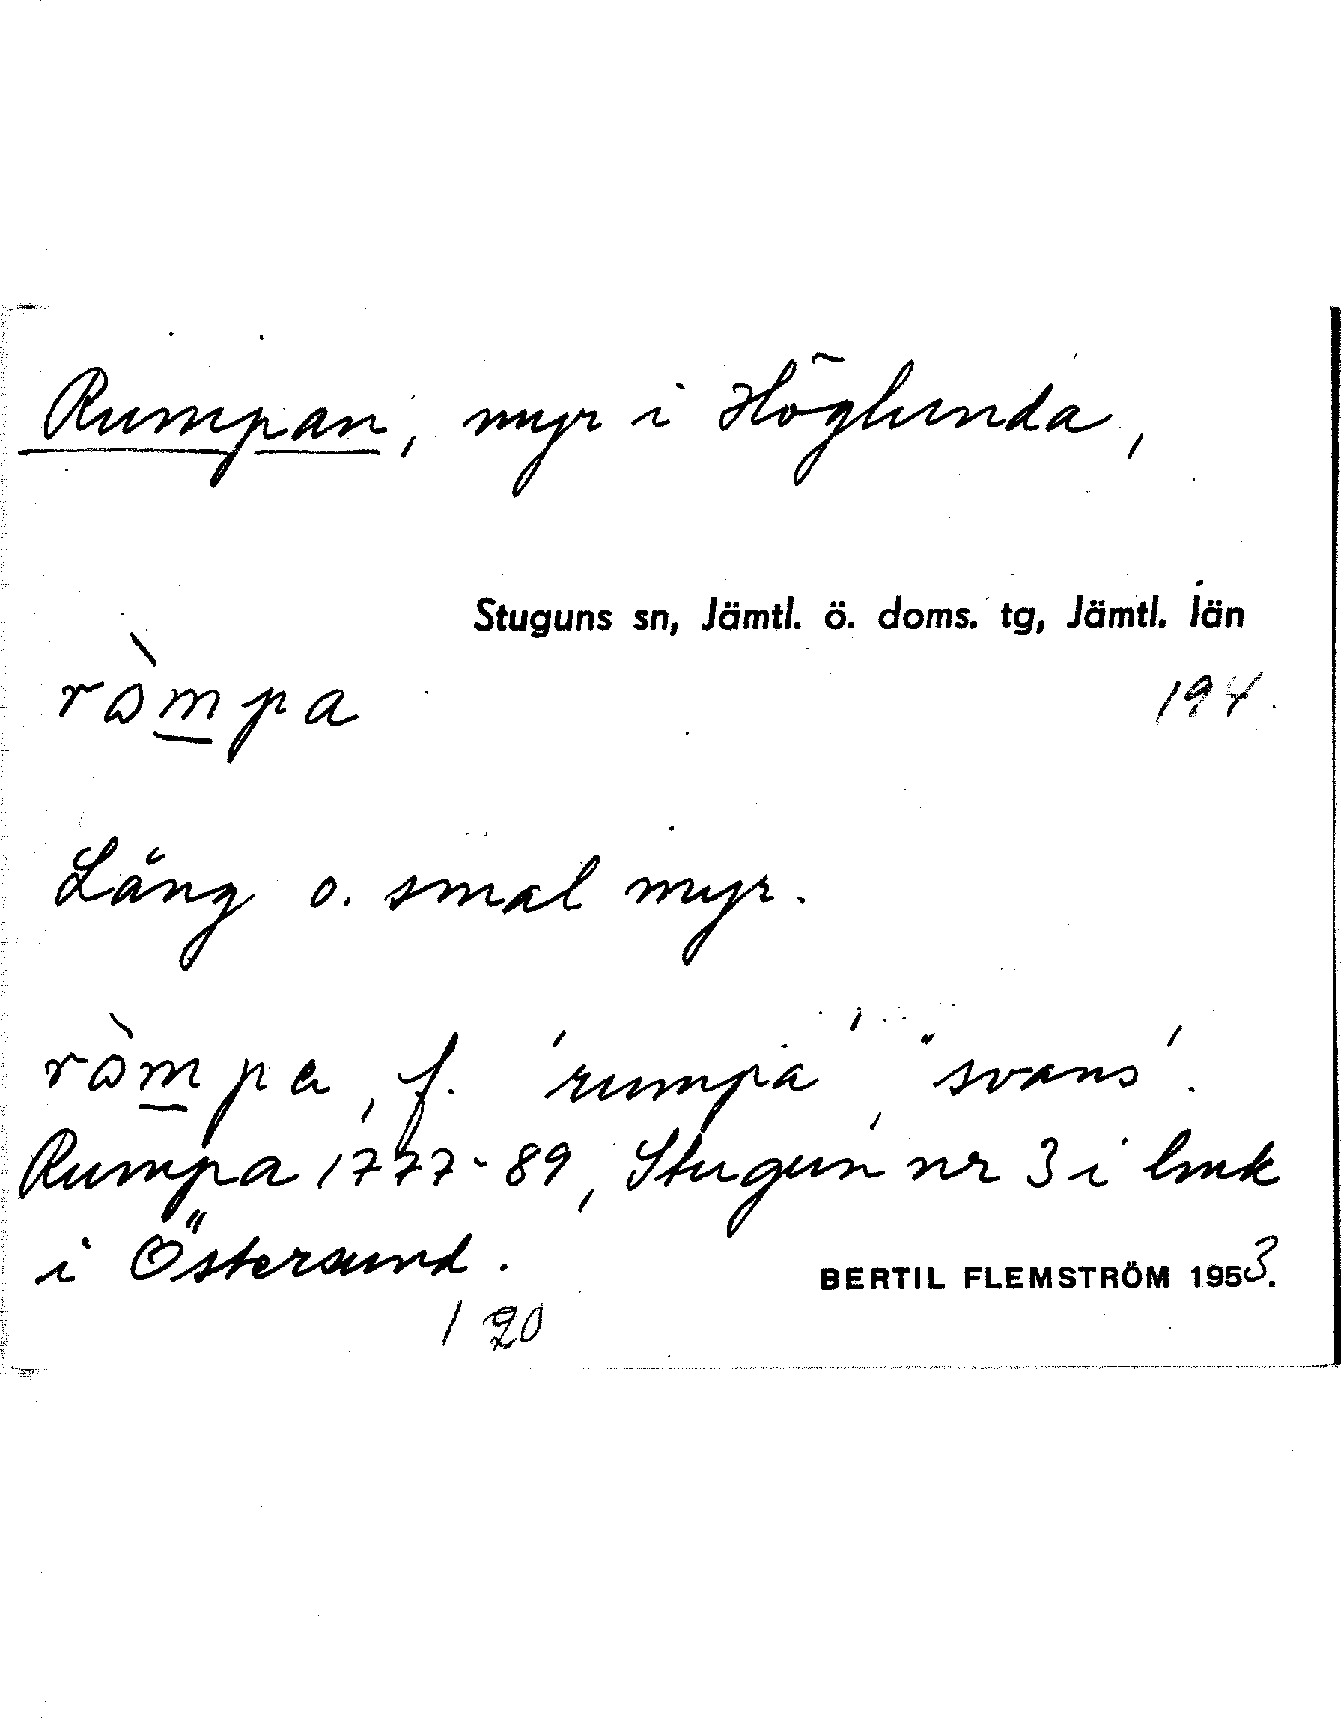 Rumpan, myr i Höglunda,
Stuguns sn, Jämtl. ö. doms. tg, Jämtl. län
ròmpa 194
Lång o. smal myr.
ròmpa, f. 'rumpa', 'svans'.
Rumpa 1777-89, Stugun nr 3 i lmk
i Östersund.
BERTIL FLEMSTRÖM 1953.
120